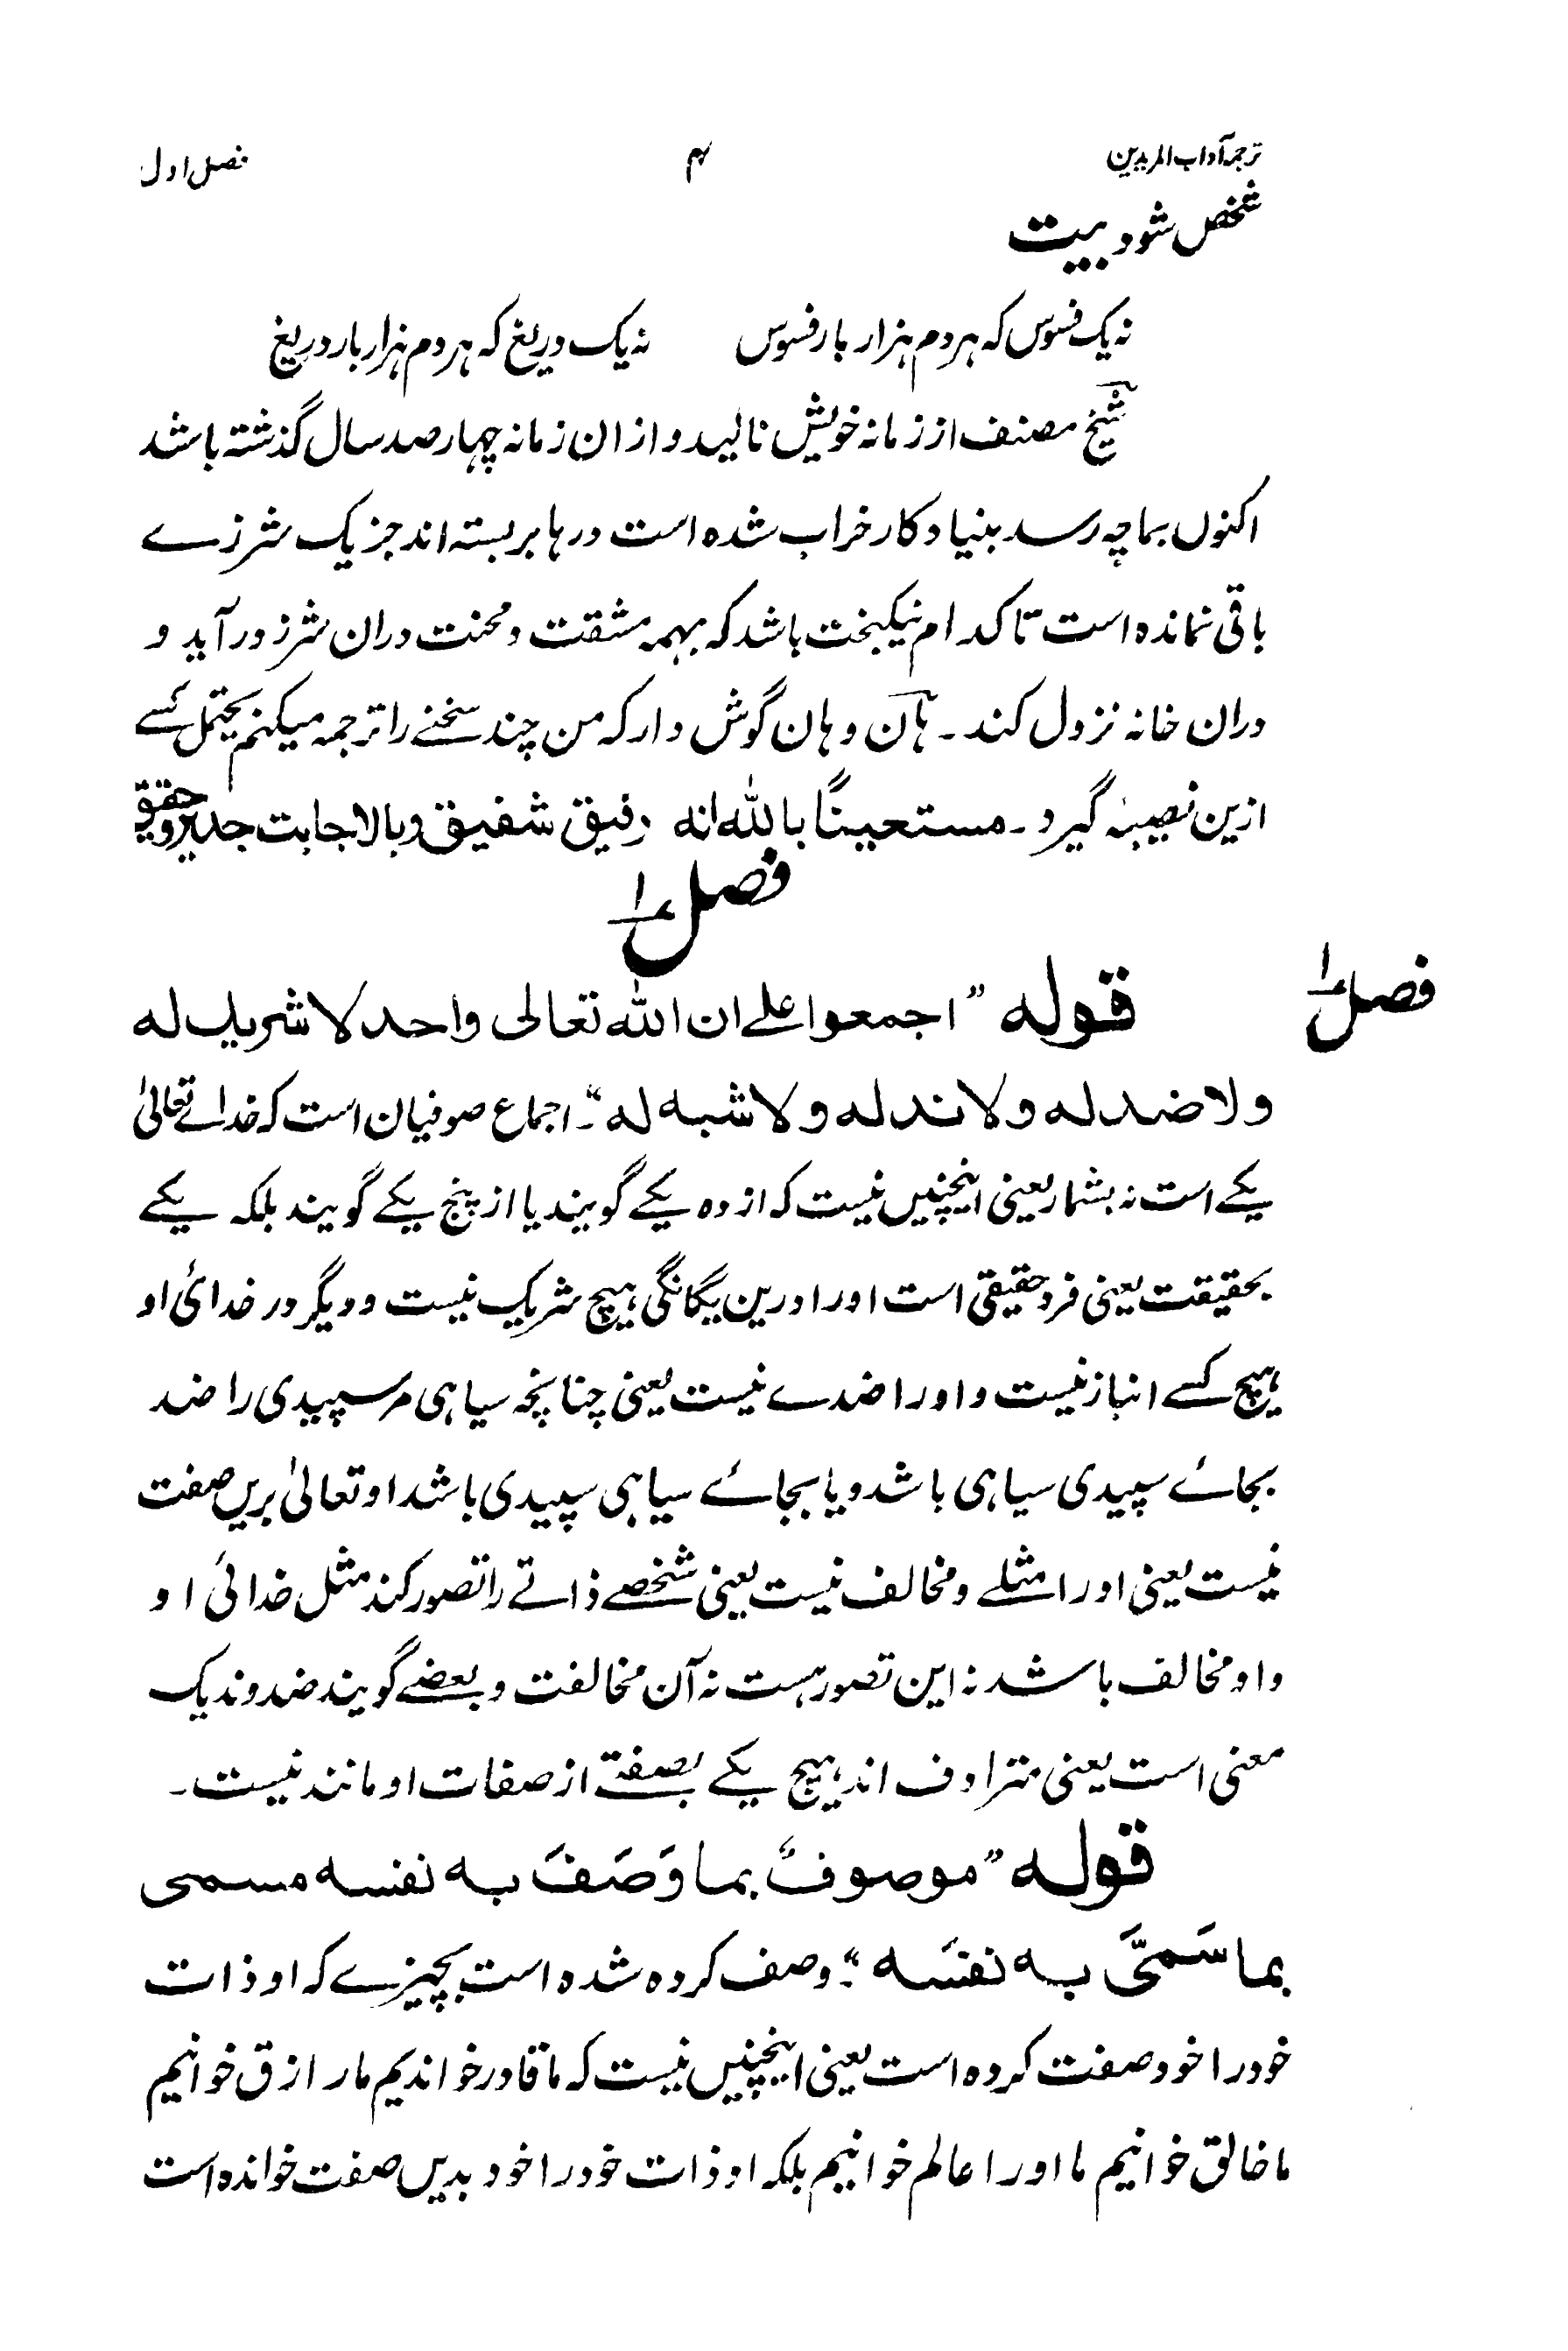 ترجمہ آداب المریدین ۴ فصل اول
شخص شود بیت
نہ یک فسوس کہ ہر دم ہزار بار فسوس نہ یک دریغ کہ ہر دم ہزار بار دریغ
شیخ مصنف از زمانہ خویش نالید و ازان زمانہ چہار صد سال گذشتہ باشد
اکنوں بما چہ رسد بنیاد کار خراب شدہ است درہا بر بستہ اند جز یک شرزے
باقی نماندہ است تا کدام نیکبخت باشد کہ بہمہ مشقت و محنت دران شرز درآید و
دران خانہ نزول کند۔ ہان و ہان گوش دار کہ من چند سخنے را ترجمہ میکنم یحتمل کسے
ازین نصیبہ گیرد۔ مستعینًا باللہ انہ رفیق شفیق وبالاجابت جدیر وحقیق
فصل ۱
فصل ۱
قولہ ”اجمعوا علے ان اللہ تعالی واحد لا شریك له
ولا ضد له ولا ند له ولا شبه له“۔ اجماع صوفیان است کہ خدائے تعالیٰ
یکے است نہ بشمار یعنی اینچنیں نیست کہ از دہ یکے گویند یا از پنج یکے گویند بلکہ یکے
بحقیقت یعنی فرد حقیقی است او را درین یگانگی ہیچ شریک نیست و دیگر در خدائی او
ہیچ کسے انباز نیست و او را ضدے نیست یعنی چنانچہ سیاہی مر سپیدی را ضد
بجائے سپیدی سیاہی باشد ویا بجائے سیاہی سپیدی باشد او تعالیٰ بریں صفت
نیست یعنی او را مثلے و مخالف نیست یعنی شخصے ذاتے را تصور کند مثل خدائی او
و او مخالف باشد نہ این تصور ہست نہ آن مخالفت و بعضے گویند ضد و ند یک
معنی است یعنی مترادف اند ہیچ یکے بصفتے از صفات او مانند نیست۔
قولہ ”موصوفٌ بما وَصَفَ به نفسه مسمی
بما سَمیَّ به نفسَه“۔ وصف کردہ شدہ است بچیزے کہ او ذات
خود را خود صفت کردہ است یعنی اینچنیں نیست کہ ما قادر خواندیم ما رازق خوانیم
ما خالق خوانیم ما او را عالم خوانیم بلکہ او ذات خود را خود بدیں صفت خواندہ است